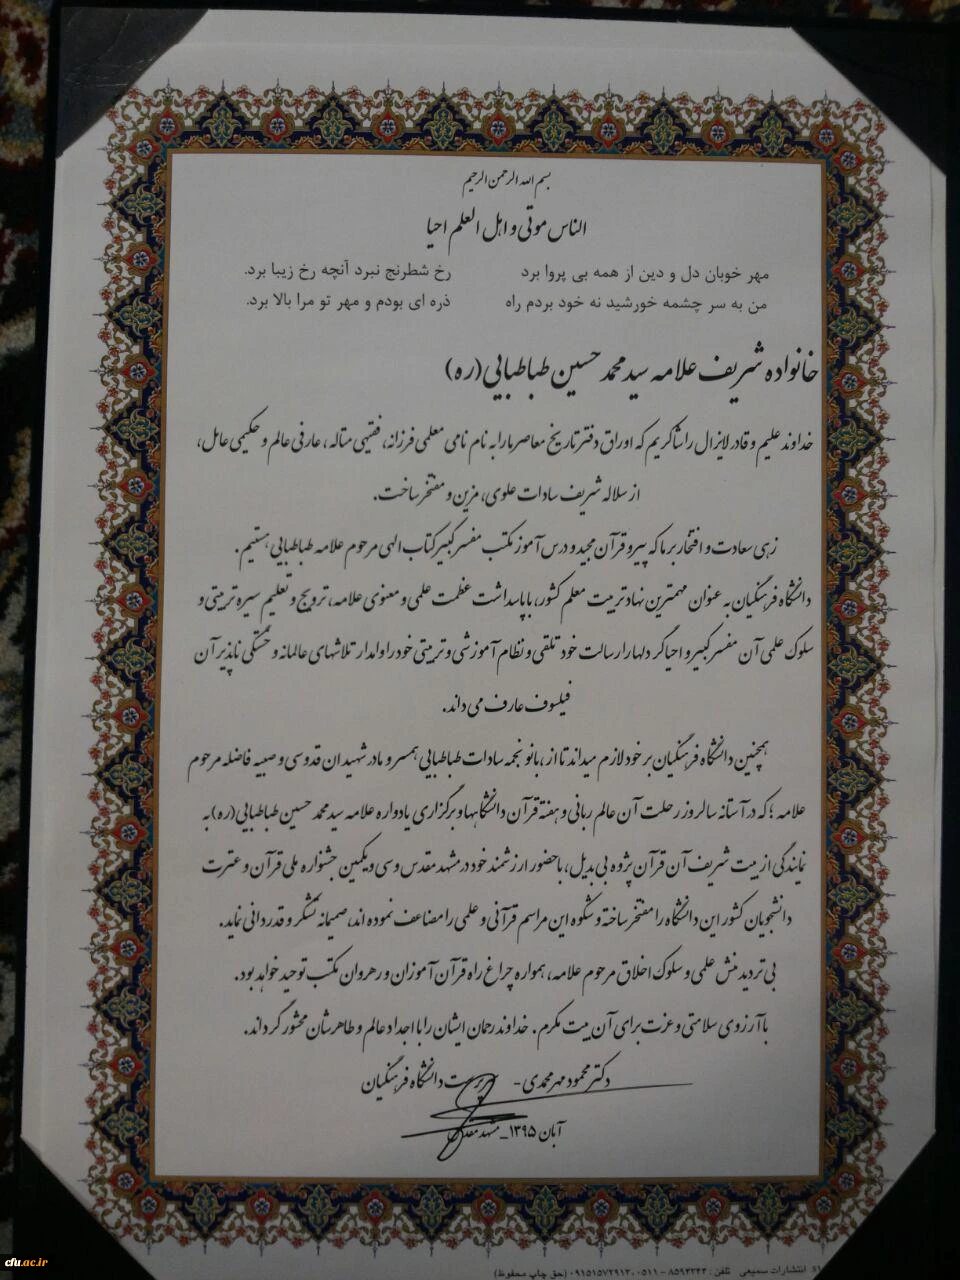 بسم الله الرحمن الرحیم
الناس موتی و اهل العلم احیا
مهر خوبان دل و دین از همه بی پروا برد رخ شطرنج نبرد آنچه رخ زیبا برد.
من به سر چشمه خورشید نه خود بردم راه ذره ای بودم و مهر تو مرا بالا برد.
خانواده شریف علامه سید محمد حسین طباطبایی (ره)
خداوند علیم و قادر لایزال را شاکریم که اوراق دفتر تاریخ معاصر ما را به نام نامی معلمی فرزانه، فقیهی متاله، عارفی عالم و حکیمی عامل،
از سلاله شریف سادات علوی، مزین و مفتخر ساخت.
زهی سعادت و افتخار بر ما که پیرو قرآن مجید و درس آموز مکتب مفسر کبیر کتاب الهی مرحوم علامه طباطبایی هستیم.
دانشگاه فرهنگیان به عنوان مهمترین نهاد تربیت معلم کشور، با پاسداشت عظمت علمی و معنوی علامه، ترویج و تعلیم سیره تربیتی و
سلوک علمی آن مفسر کبیر و احیاگر دلها را رسالت خود تلقی و نظام آموزشی و تربیتی خود را وامدار تلاشهای عالمانه و خستگی ناپذیر آن
فیلسوف عارف می داند.
همچنین دانشگاه فرهنگیان بر خود لازم میداند تا از، بانو نجمه سادات طباطبایی همسر و مادر شهیدان قدوسی و صبیه فاضله مرحوم
علامه؛ که در آستانه سالروز رحلت آن عالم ربانی و هفته قرآن دانشگاهها و برگزاری یادواره علامه سید محمد حسین طباطبایی (ره) به
نمایندگی از بیت شریف آن قرآن پژوه بی بدیل، با حضور ارزشمند خود در مشهد مقدس و سی و یکمین جشنواره ملی قرآن و عترت
دانشجویان کشور این دانشگاه را مفتخر ساخته و شکوه این مراسم قرآنی و علمی را مضاعف نموده اند، صمیمانه تشکر و قدردانی نماید.
بی تردید منش علمی و سلوک اخلاق مرحوم علامه، همواره چراغ راه قرآن آموزان و رهروان مکتب توحید خواهد بود.
با آرزوی سلامتی و عزت برای آن بیت مکرم. خداوند رحمان ایشان را با اجداد عالم و طاهرشان محشور گرداند.
دکتر محمود مهرمحمدی - سرپرست دانشگاه فرهنگیان
آبان ۱۳۹۵_ مشهد مقدس
انتشارات سمیعی تلفن: ۸۵۹۴۲۴۴ - ۰۵۱۱ ، ۰۹۱۵۱۵۷۲۹۱۳ (حق چاپ محفوظ)
cfu.ac.ir